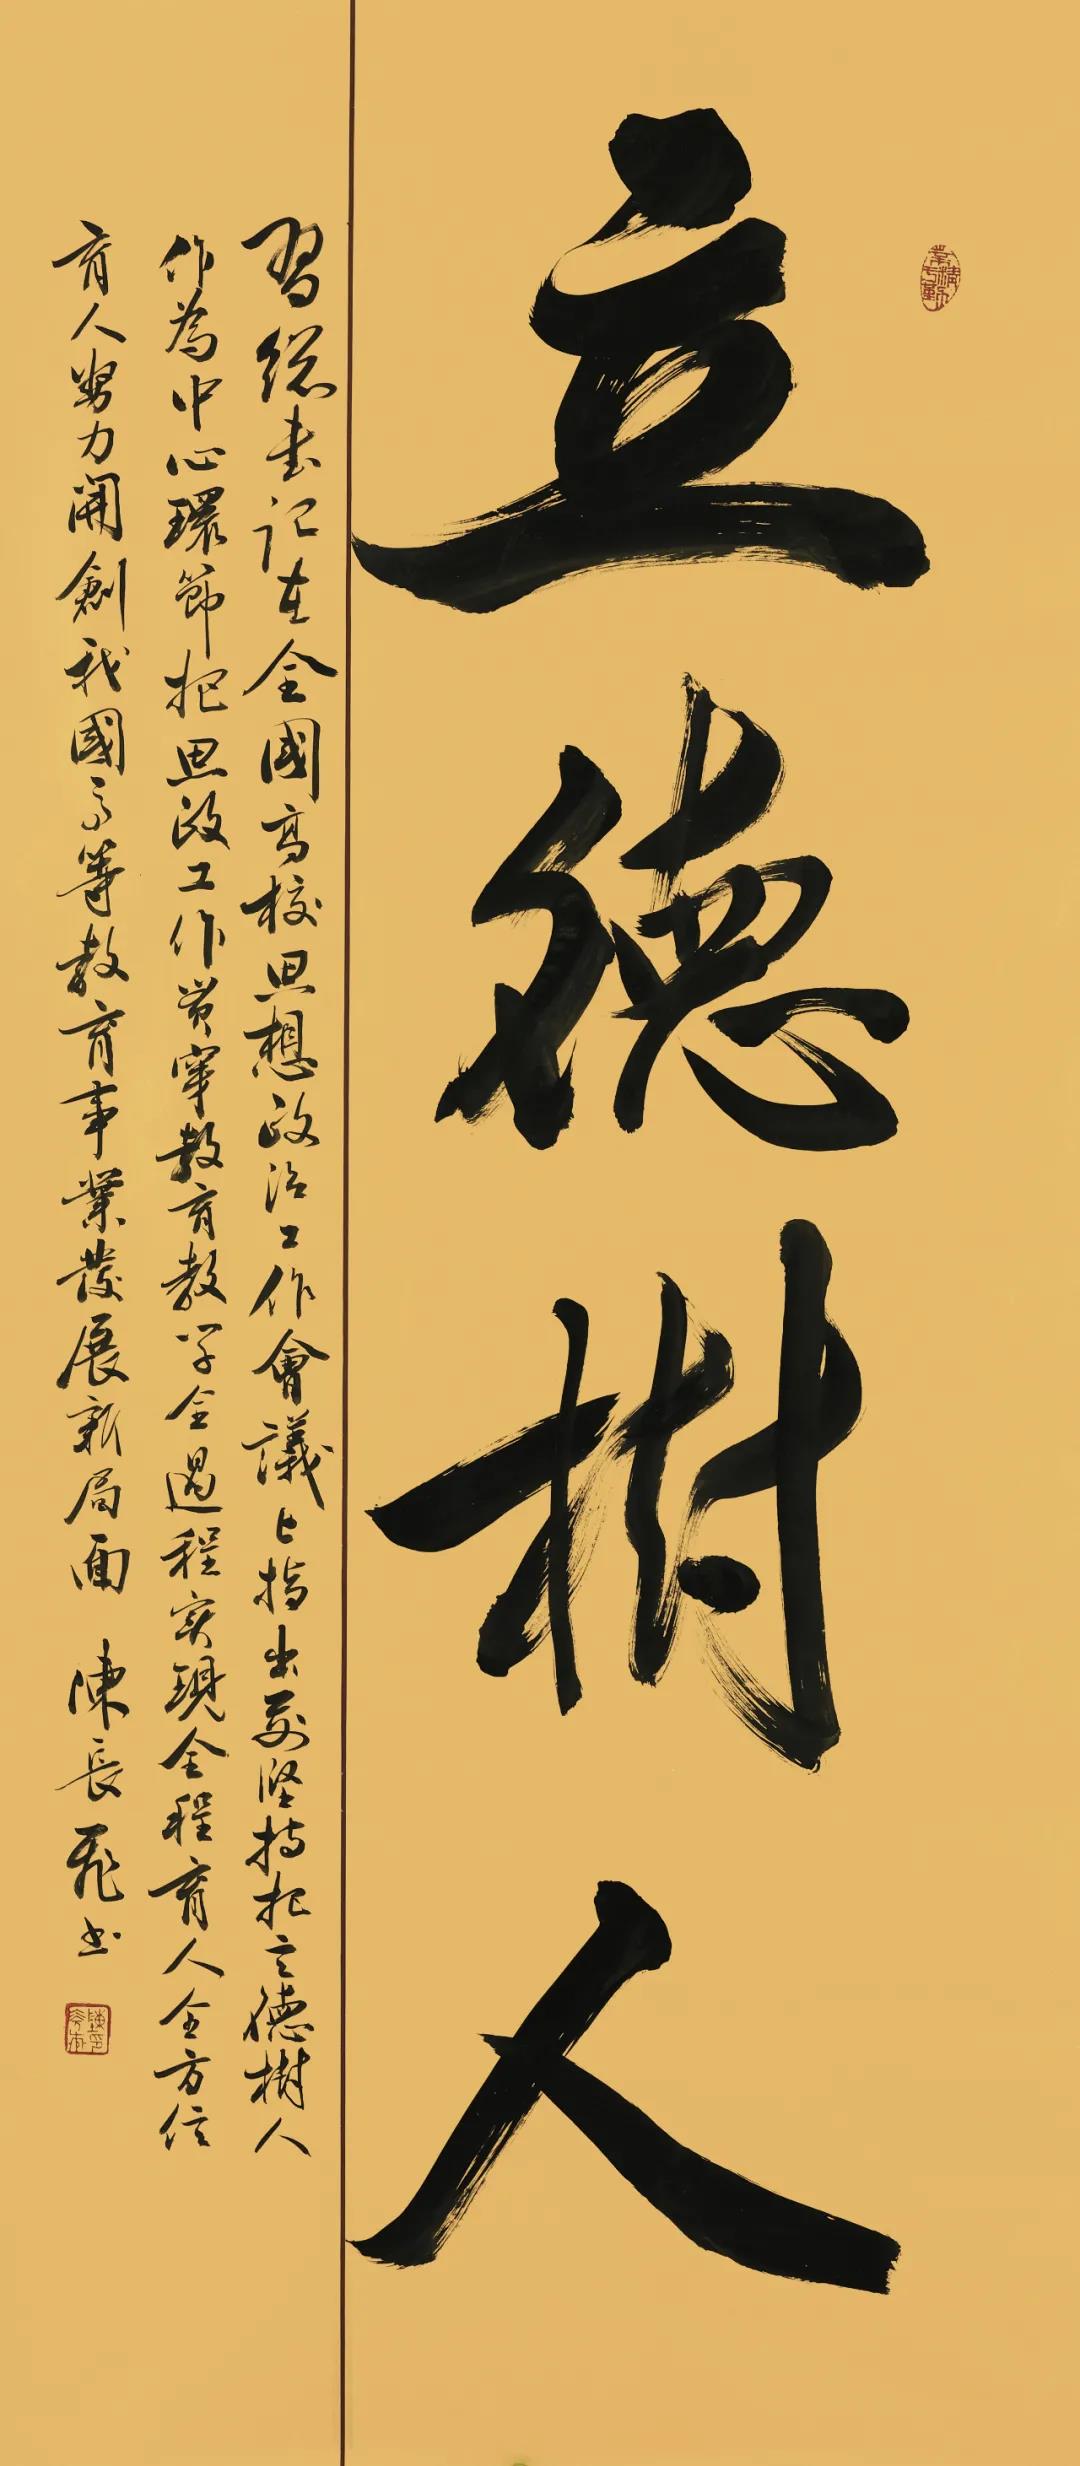 業精於勤
立德樹人
習總書記在全國高校思想政治工作會議上指出要堅持把立德樹人
作為中心環節把思政工作貫穿教育教学全過程实現全程育人全方位
育人努力開創我國高等教育事業發展新局面 陳長飛书